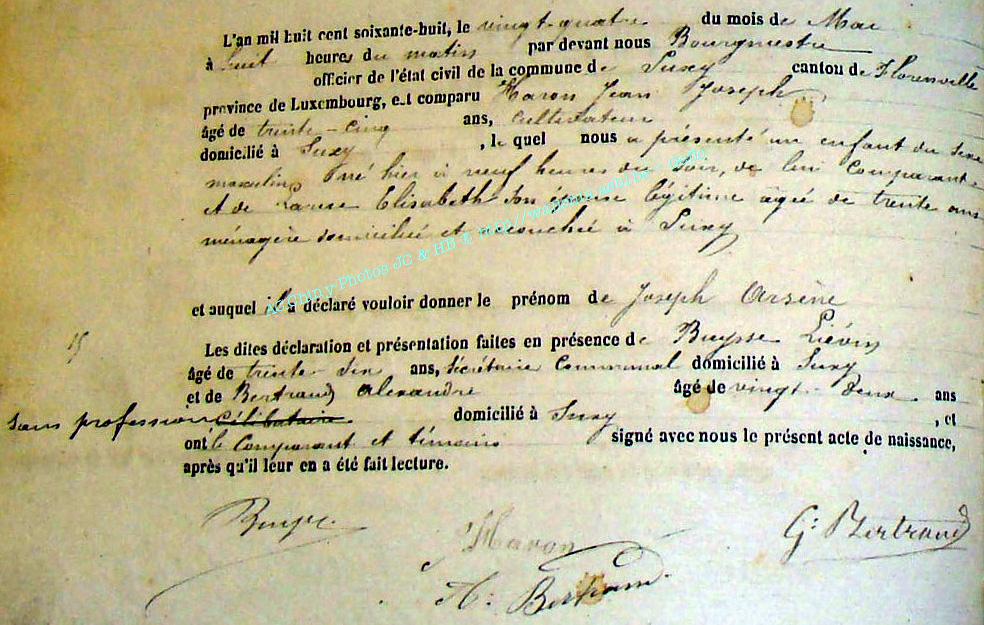 L'an mil huit cent soixante-huit, le vingt-quatre du mois de Mai
à huit heures du matin par devant nous Bourgmestre
officier de l'état civil de la commune de Suxy canton de Florenville
province de Luxembourg, est comparu Maron Jean Joseph
âgé de trente-cinq ans, cultivateur
domicilié à Suxy, le quel nous a présenté un enfant du sexe
masculin, né hier à neuf heures du soir, de lui Comparant
et de Elisabeth son épouse légitime âgée de trente ans
ménagère domiciliée et accouchée à Suxy
et auquel il a déclaré vouloir donner le prénom de Joseph Arsène
15
Les dites déclaration et présentation faites en présence de Buysse Liévin
âgé de trente-six ans, Secrétaire Communal domicilié à Suxy
et de Bertrand Alexandre âgé de vingt-deux ans
sans profession Célibataire domicilié à Suxy, et
ont le Comparant et témoins signé avec nous le présent acte de naissance,
après qu'il leur en a été fait lecture.
Buysse
Maron
G: Bertrand
A: Bertrand